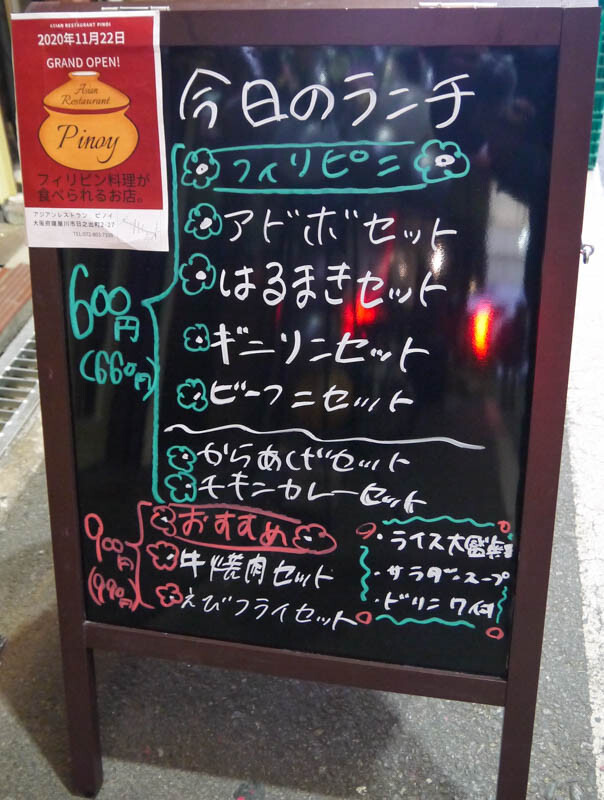 ASIAN RESTAURANT PINOY
2020年11月22日
GRAND OPEN!
Asian
Restaurant
Pinoy
フィリピン料理が
食べられるお店。
アジアンレストラン ピノイ
大阪府寝屋川市日之出町2-27
今日のランチ
フィリピン
アドボセット
はるまきセット
ギニリンセット
ビーフンセット
600円
(660円)
からあげセット
チキンカレーセット
おすすめ
900円
(990円)
牛焼肉セット
えびフライセット
・ライス大盛無料
・サラダ・スープ
・ドリンク付